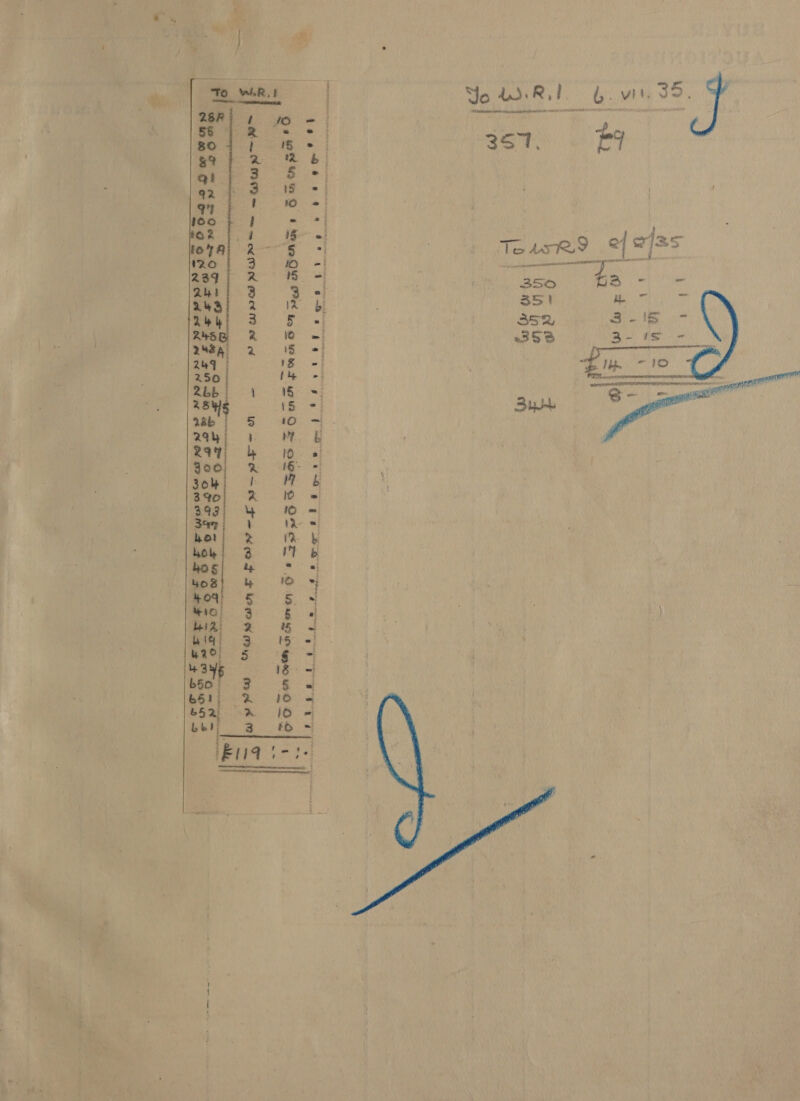 To W.R.I
28A 1 10 -
56 2 - -
80 1 15 -
89 2 12 6
91 3 5 -
92 3 15 -
97 1 10 -
100 1 - -
102 1 15 -
107A 2 5 -
120 3 10 -
239 2 15 -
241 3 3 -
243 2 12 6
244 3 5 -
245B 2 10 -
248A 2 15 -
249 18 -
250 14 -
266 1 15 -
284/5 15 -
286 5 10 -
294 1 17 6
297 4 10 -
300 2 16 -
304 1 17 6
390 2 10 -
393 4 10 -
397 1 12 -
401 2 12 6
404 3 17 6
405 4 - -
408 4 10 -
409 5 5 -
410 3 5 -
412 2 15 -
419 3 15 -
420 5 5 -
434/5 18 -
650 3 5 -
651 2 10 -
652 2 10 -
661 3 10 -
£119 : - : -
To W.R.I. 6. VII. 35.
357. £9
To WRI
350 £3 - -
351 4 - -
352 3 - 15 -
353 3 - 15 -
£14 - 10 -
344 8 - -